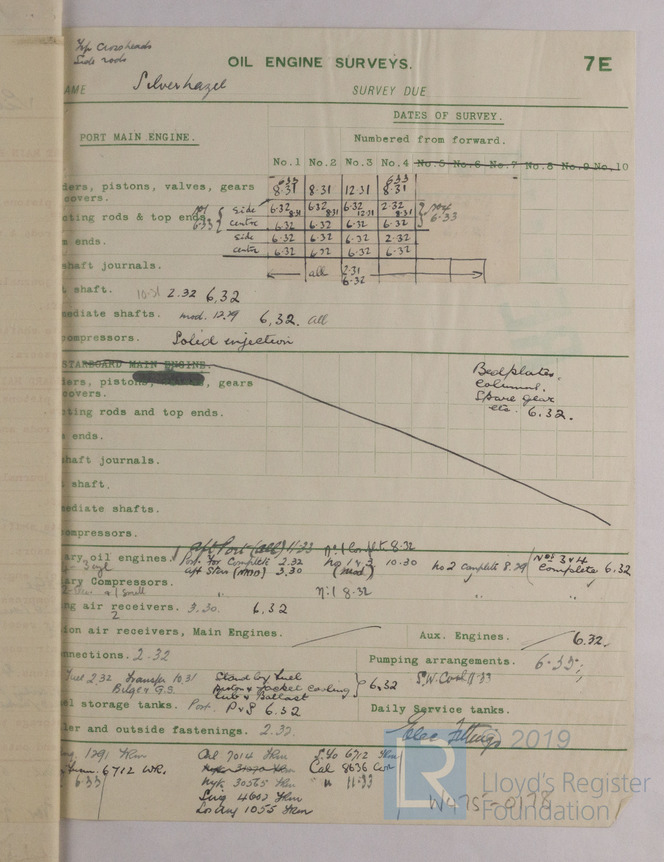 Top Crossheads
Side rods
OIL ENGINE SURVEYS. 7E
AME Silverhazel SURVEY DUE
DATES OF SURVEY.
PORT MAIN ENGINE. Numbered from forward.
No.1 No.2 No.3 No.4 No.5 No.6 No.7 No.8 No.9 No.10
ders, pistons, valves, gears 8.31 8.31 12.31 8.31
covers.
cting rods & top ends. side 6.32 8.31 6.32 8.31 6.32 12.31 2.32 8.31 No4
6.33 centre 6.32 6.32 6.32 6.32 6.33
m ends. side 6.32 6.32 6.32 2.32
centre 6.32 6.32 6.32 6.32
shaft journals. all 2.31
6.32
t shaft. 10.31 2.32 6.32
mediate shafts. mod. 12.29 6.32. all
compressors. Solid injection
STARBOARD MAIN ENGINE.
ders, pistons, gears
covers.
Bedplates.
Columns.
Spare gear
etc. 6.32.
cting rods and top ends.
ends.
shaft journals.
shaft.
mediate shafts.
compressors.
Aft Port (all) 11/33 No 1 Complt 8.32
ary oil engines. Port For Complete 2.32 No 1 & 2 10.30 No 2 complete 8.29 Nos 3 & 4
3 cyl aft Star (MOD) 3.30 (mod) Complete 6.32
ary Compressors.
1 small " No 1 8.32 " "
ng air receivers. 3.30. 6.32
2
ion air receivers, Main Engines. Aux. Engines. 6.32.
nnections. 2.32 Pumping arrangements. 6.33;
Fuel 2.32 Transfer 10.31 Stand by fuel S.W. Cool 11.33
Bilge & G.S. Piston & Jacket cooling 6.32
Lub & Ballast
el storage tanks. Port. P & S 6.32 Daily Service tanks.
ler and outside fastenings. 2.32. Elec Fittings
1291 Hkm Cal 7014 Hkm S'to 6712 Hkm
6712 WR. Nyk 30565 Hkm Cal 8636 Con
6.33 Sing 4602 Hkm " 11.33
Los Ang 1055 Hkm
2019
LR
Lloyd's Register
Foundation
W475-0178